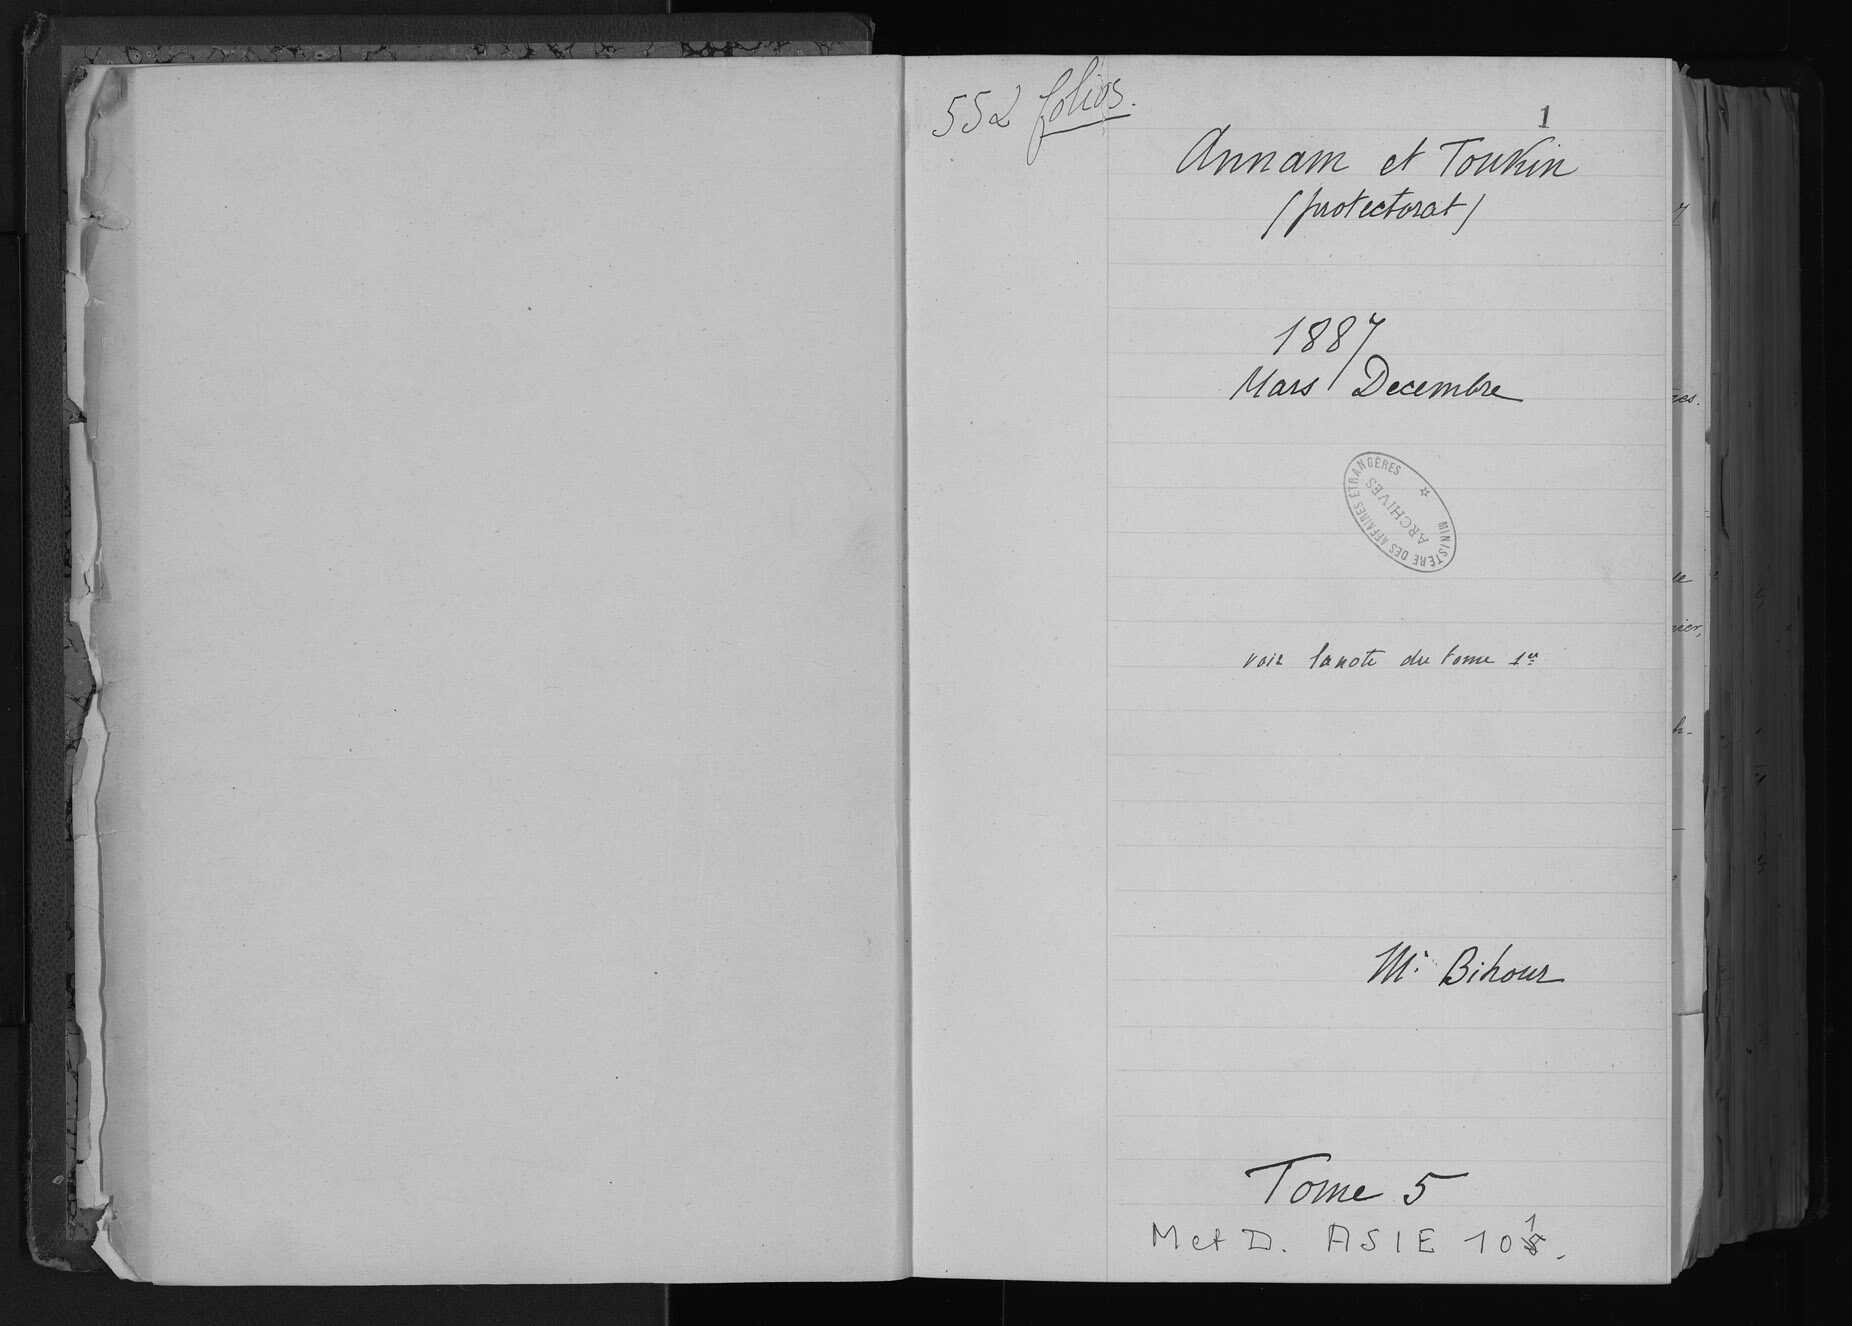 552 folios.
1
Annam et Tonkin
(protectorat)
1887
Mars / Decembre
MINISTERE DES AFFAIRES ETRANGERES
ARCHIVES
voir la note du tome 1er
Mr Bihour
Tome 5
M et D. ASIE 10